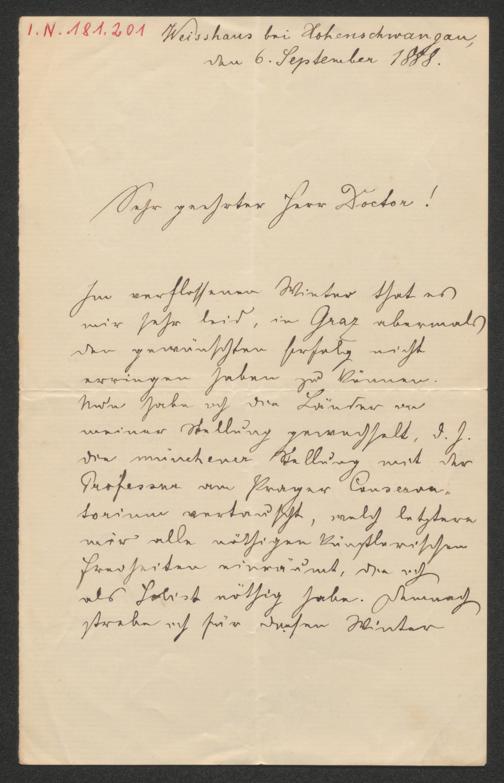 I.N. 181.201
Weisshaus bei Hohenschwangau,
den 6. September 1888.
Sehr geehrter Herr Doctor!
Im verflossenen Winter that es
mir sehr leid, in Graz abermals
den gewünschten Erfolg nicht
erringen haben zu können.
Nun habe ich die Länder in
meiner Stellung gewechselt, d. h.
die münchener Stellung mit der
Professur am Prager Conserva-
torium vertauscht, welch letztere
mir alle nöthigen künstlerischen
Freiheiten einräumt, die ich
als Solist nöthig habe. Demnach
strebe ich für diesen Winter